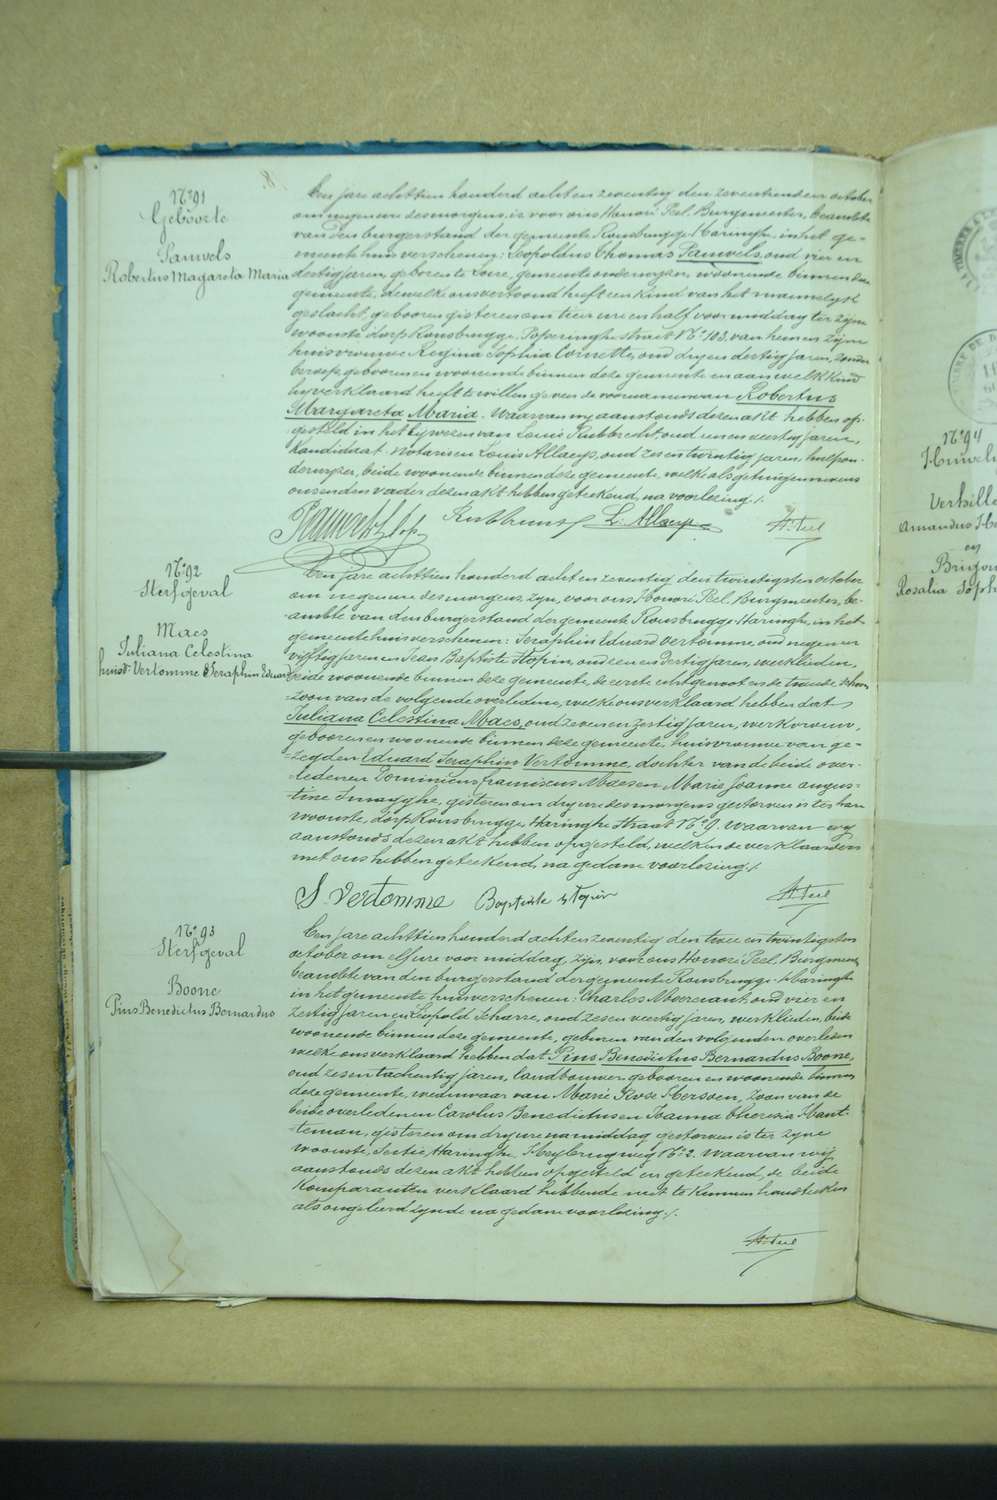 8.
Nº 91
Geboorte
Pauwels
Robertus Magareta Maria
Een jare achttien honderd acht en zeventig den zeventienden october
om negen ure des morgens, is voor ons Honoré Peel, Burgmeester, beambte
van den burgerstand der gemeente Rousbrugge-Haringhe, in het ge-
meente huis verschenen: Leopoldus Thomas Pauwels, oud vier en
dertig jaren, geboren te Loere, gemeente onderwijzer, woonende binnen deze
gemeente, dewelke ons vertoond heeft een kind van het mannelijk
geslacht, geboren gisteren om tien ure en half voormiddag ter zijne
woonste dorp Rousbrugge, Poperinghe straat Nº 103, van hem en zijne
huisvrouwe Regina Sophia Cornette, oud dry en dertig jaren, zonder
beroep, geboren en woonende binnen deze gemeente en aan welk kind
hy verklaard heeft te willen geven de voornamen van Robertus
Margareta Maria. Waarvan wy aanstonds dezen akt hebben op-
gesteld in het bijwezen van Louis Rubbrecht, oud een en veertig jaren,
kandidaat-notaris en Louis Allaeys, oud zes en twintig jaren, hulpon-
derwijzer, beide woonende binnen deze gemeente, welke als getuigen nevens
ons en den vader dezen akt hebben geteekend, na voorlezing ./.
Pauwels Lop
Rubbrecht
L. Allaeys
H. Peel
Nº 92
Sterfgeval
Maes
Juliana Celestina
huisv. Vertomme Seraphin Eduard
Een jare achttien honderd acht en zeventig den twintigsten october
om negen ure des morgens, zyn, voor ons Honoré Peel, Burgmeester, be-
ambte van den burgerstand der gemeente Rousbrugge-Haringhe, in het
gemeente huis verschenen: Seraphin Eduard Vertomme, oud negen en
vijftig jaren en Jean Baptiste Stopin, oud een en dertig jaren, werklieden,
beide woonende binnen deze gemeente, de eerste echtgenoot en de tweede schoon
zoon van de volgende overledene, welke ons verklaard hebben dat
Juliana Celestina Maes, oud zeven en zestig jaren, werkvrouw,
geboren en woonende binnen deze gemeente, huisvrouwe van ge-
zegden Eduard Seraphin Vertomme, dochter van de beide over-
ledenen Dominicus Franciscus Maes en Marie Joanne Augus-
tine Smagghe, gisteren om dry ure des morgens gestorven is ter hare
woonste, dorp Rousbrugge, Haringhe straat Nº 9. Waarvan wy
aanstonds dezen akt hebben opgesteld, welken de verklaarders
met ons hebben geteekend, na gedane voorlezing ./.
S. Vertomme
Baptiste Stopin
H. Peel
Nº 93
Sterfgeval
Boone
Pius Benedictus Bernardus
Een jare achttien honderd acht en zeventig den twee en twintigsten
october om elf ure voor middag, zijn, voor ons Honoré Peel, Burgmeester,
beambte van den burgerstand der gemeente Rousbrugge-Haringhe
in het gemeente huis verschenen: Charles Moereaut, oud vier en
zestig jaren en Leopold Scharre, oud zes en veertig jaren, werklieden, beide
woonende binnen deze gemeente, geburen van den volgenden overleden
welke ons verklaard hebben dat Pius Benedictus Bernardus Boone,
oud zes en tachentig jaren, landbouwer, geboren en woonende binnen
deze gemeente, weduwaar van Marie Rose Hersoen, zoon van de
beide overledenen Carolus Benedictus en Joanna Theresia Hant-
teman, gisteren om dry ure namiddag gestorven is ter zijne
woonste, Sectie Haringhe, Heybrugweg Nº 2. Waarvan wij
aanstonds dezen akt hebben opgesteld en geteekend, de beide
komparanten verklaard hebbende niet te kunnen handteeken
als ongeleerd zijnde na gedane voorlezing ./.
H. Peel
Nº 94
Huweli
Verhille
Amandus H
en
Brigou
Rosalia Soph